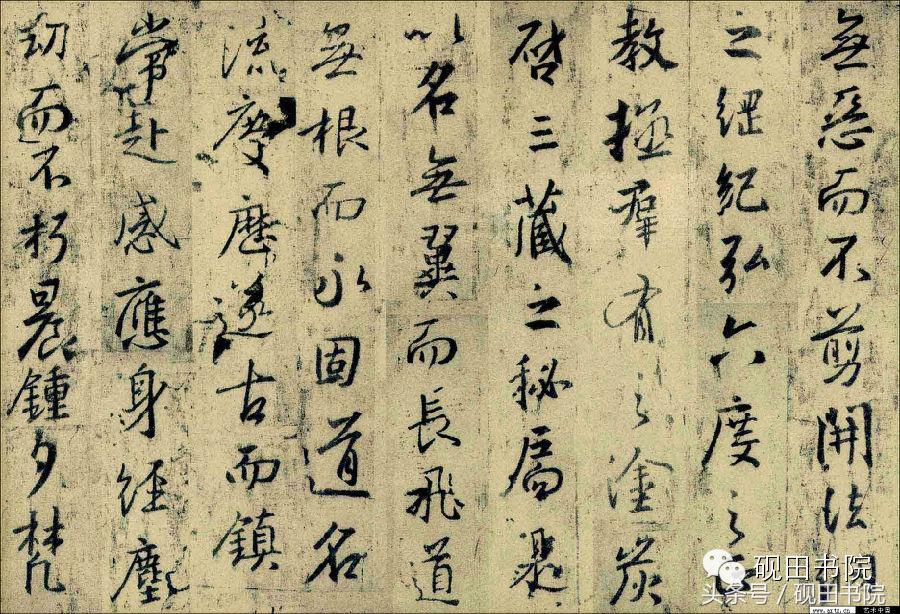 無惡而不剪開法網
之綱紀弘六度之正
教拯群有之塗炭
啓三藏之秘扃是
以名無翼而長飛道
無根而永固道名
流慶歷遂古而鎮
常赴感應身經塵
劫而不朽晨鍾夕梵
砚田书院
头条号／砚田书院
www.artx.cn 艺术中国